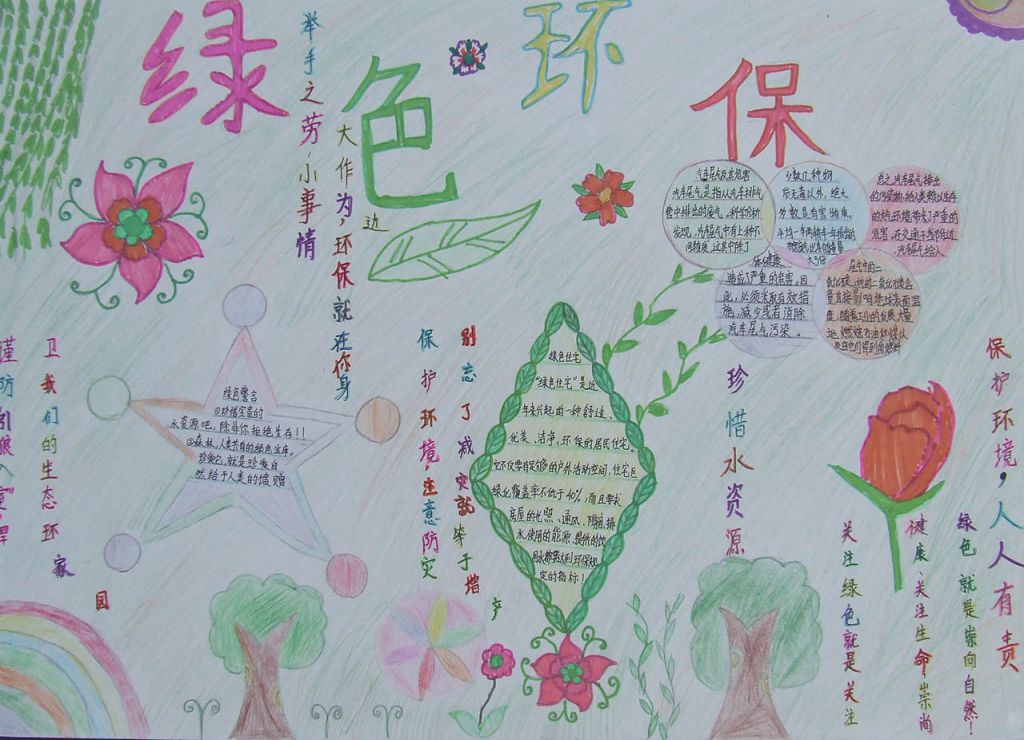 绿色环保
举手之劳,小事情
大作为,环保就在你身
边
汽车尾气及其危害
汽车尾气是指从汽车排气
管中排出的废气,科学分析
发现,汽车尾气中有上种不
少数几种物
质无毒以外,绝大
多数是有害物质,
总之,汽车尾气排出
的污染物,给人类赖以生存
的的环境带来了严重的
危害,在交通干线附近
汽车尾气给人
体健康
造成了严重的危害,因
此,必须采取有效措
施,减少或者消除
汽车尾气污染。
尾气中的二
绿色警言
①珍惜宝贵的
水资源吧,除非你拒绝生存!!!
②森林,人类共有的绿色宝库,
珍爱它,就是珍爱自
然给于人类的馈赠
绿色住宅
“绿色住宅”是近
年来兴起的一种舒适、
优美、洁净、环保的居民住宅。
它不仅要有足够的户外活动空间,住宅区
绿化覆盖率不低于40%,而且要求
房屋的光照、通风、阴雨、排
水,使用的能源、提供的饮
用水都要达到环保规
定的指标!
谨防引狼入室
卫我们的生态环家
园
保护环境,注意防灾
别忘了减灾就等于增
产
珍惜水资源
保护环境,人人有责
关注绿色就是关注
健康、关注生命崇尚
绿色就是崇向自然!